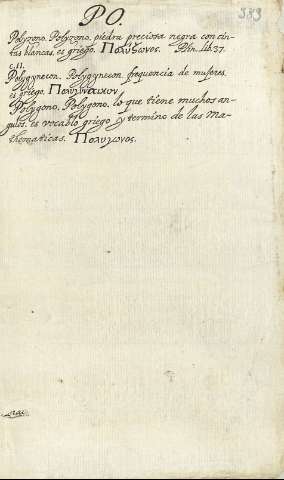 PO.
383
Polyzono. Polyzono. piedra preciosa negra con cin-
tas blancas, es griego. Πολύζωνος. Plin. lib. 37.
c.11.
Polygynecon. Polygynecon. frequencia de mujeres.
es griego.
Polygono. Polygono. lo que tiene muchos an-
gulos. es vocablo griego y termino de las Ma-
thematicas.